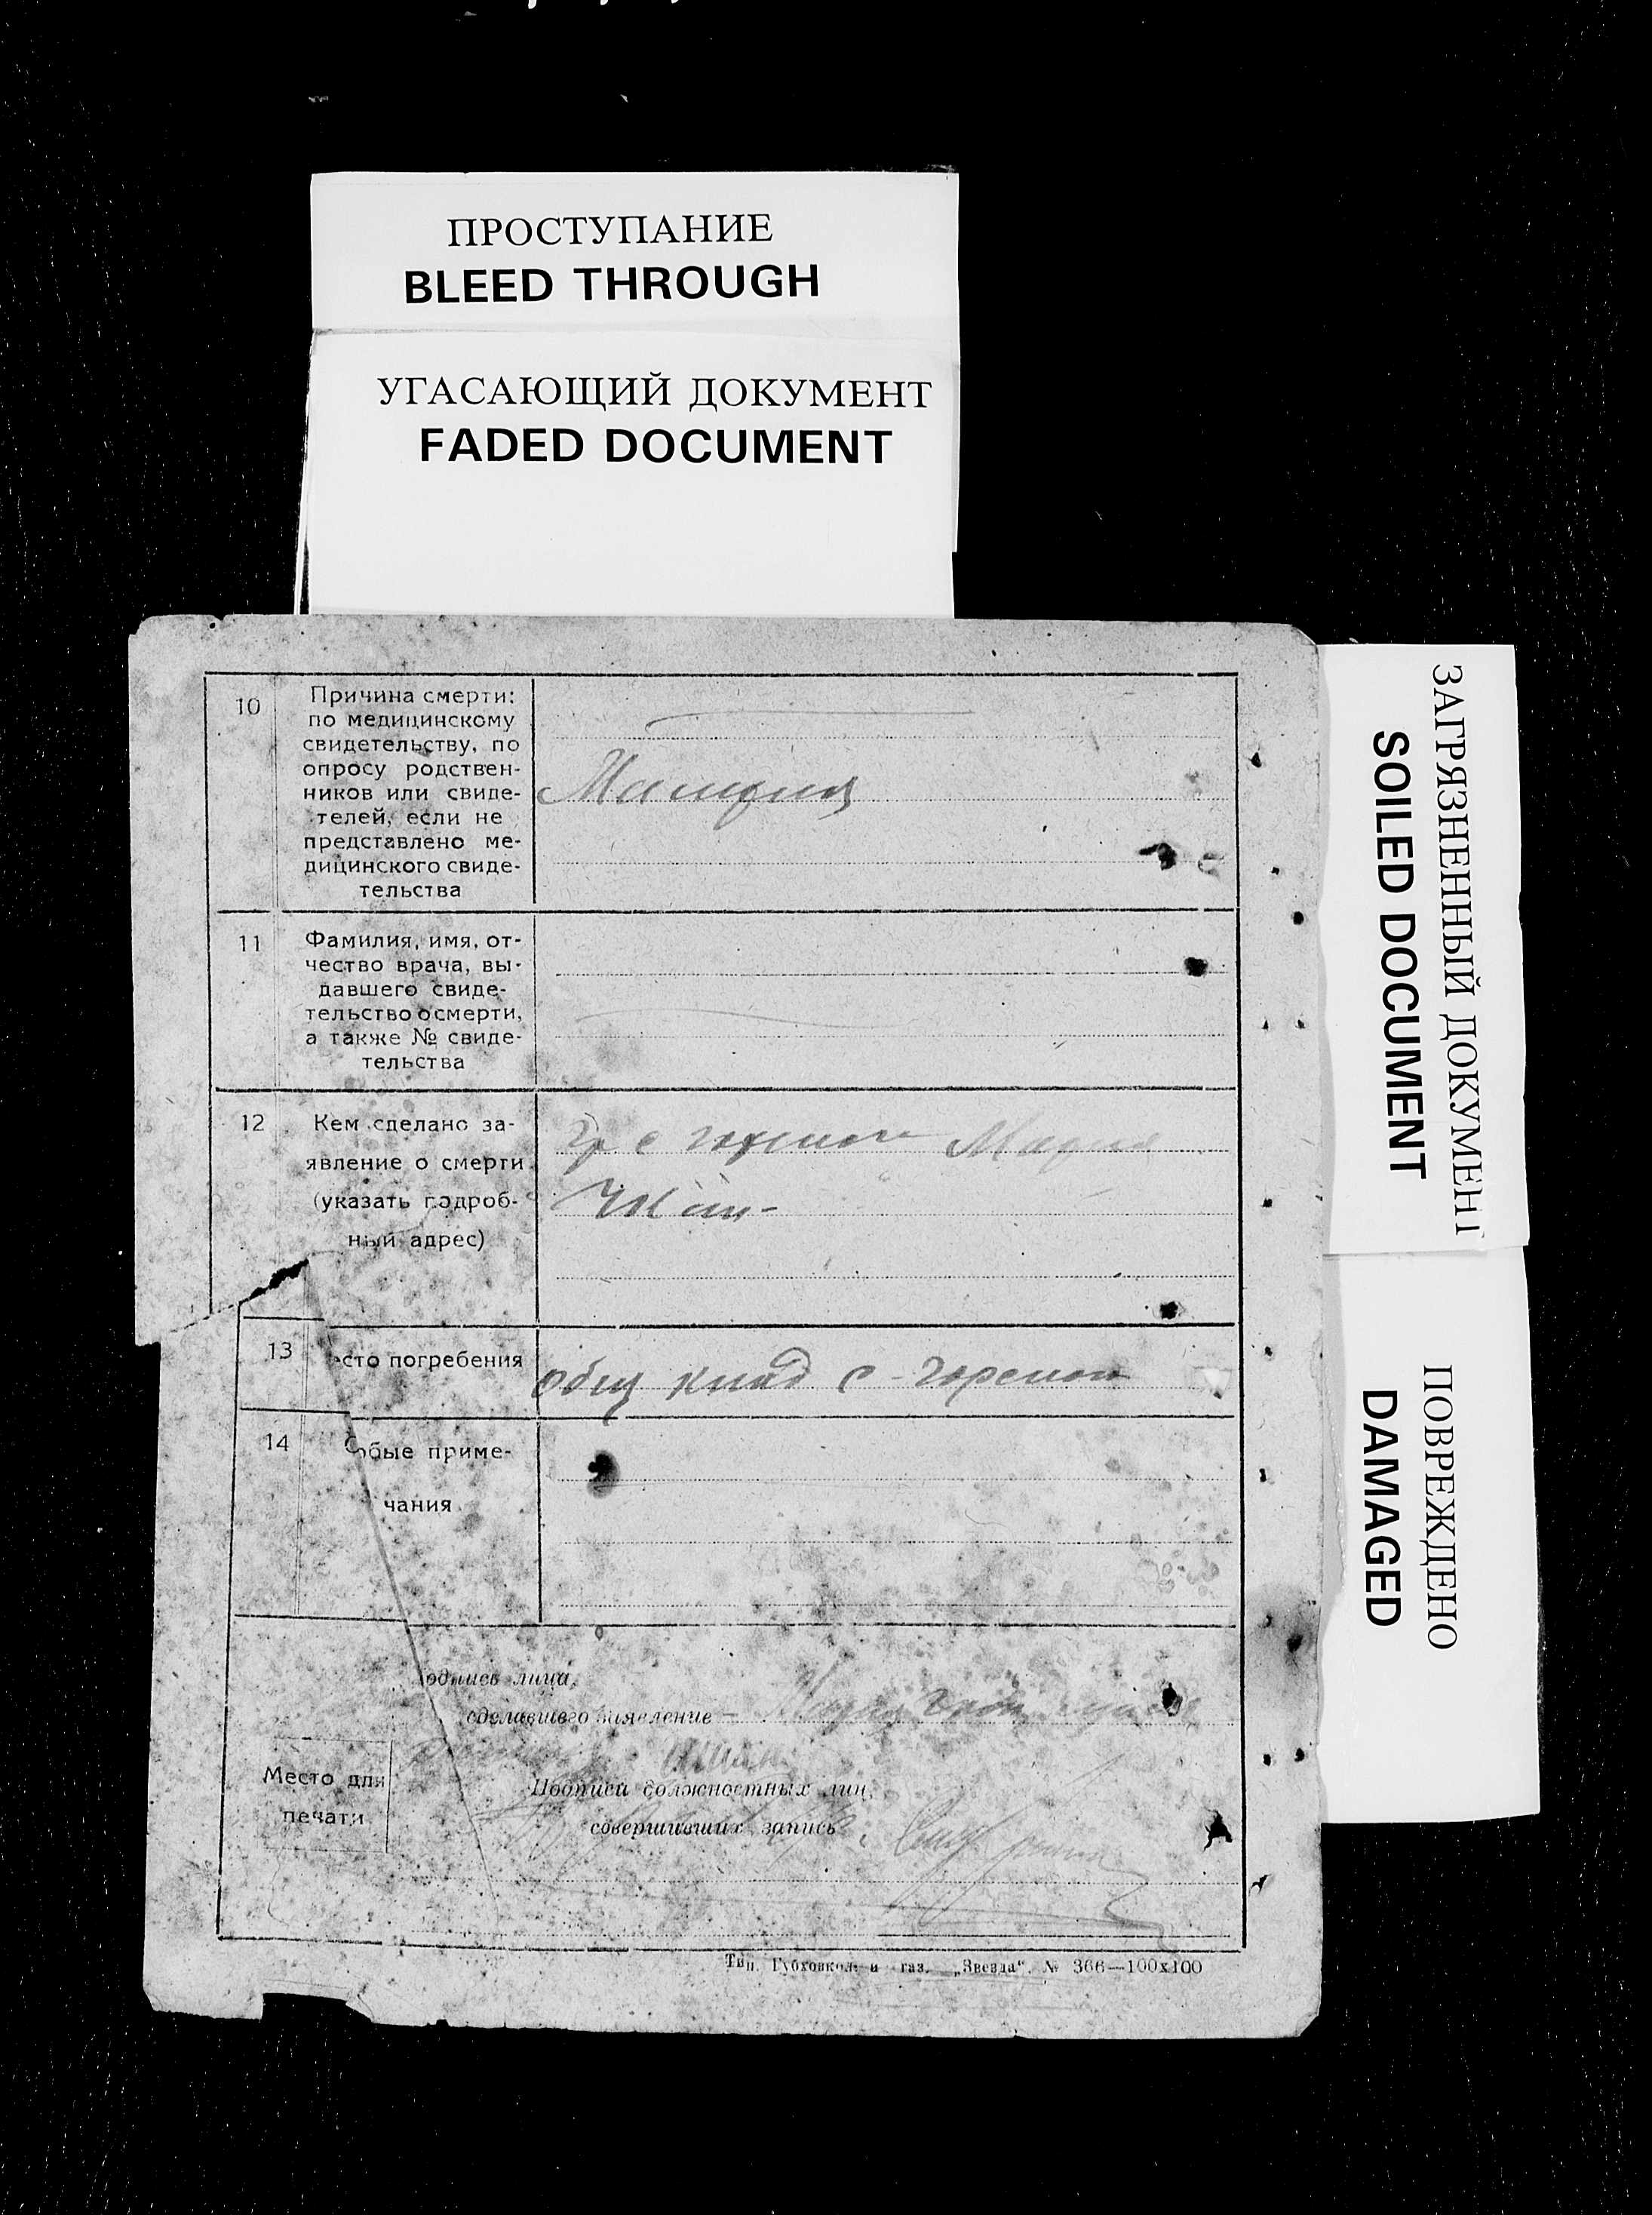 ПРОСТУПАНИЕ
BLEED THROUGH
УГАСАЮЩИЙ ДОКУМЕНТ
FADED DOCUMENT
ЗАГРЯЗНЕННЫЙ ДОКУМЕНТ
SOILED DOCUMENT
ПОВРЕЖДЕНО
DAMAGED
10
Причина смерти:
по медицинскому
свидетельству, по
опросу родствен-
ников или свиде-
телей, если не
представлено ме-
дицинского свиде-
тельства
11
Фамилия, имя, от-
чество врача, вы-
давшего свиде-
тельство о смерти,
а также № свиде-
тельства
12
Кем сделано за-
явление о смерти
(указать подроб-
ный адрес)
гр с Мария
13
есто погребения
общ клад с
14
обые приме-
чания
одпись лица,
сделавшего заявление –
Подписи должностных лиц,
совершивших запись
Место для
печати
Тип. Губховкол. и газ. „Звезда“. № 366—100х100